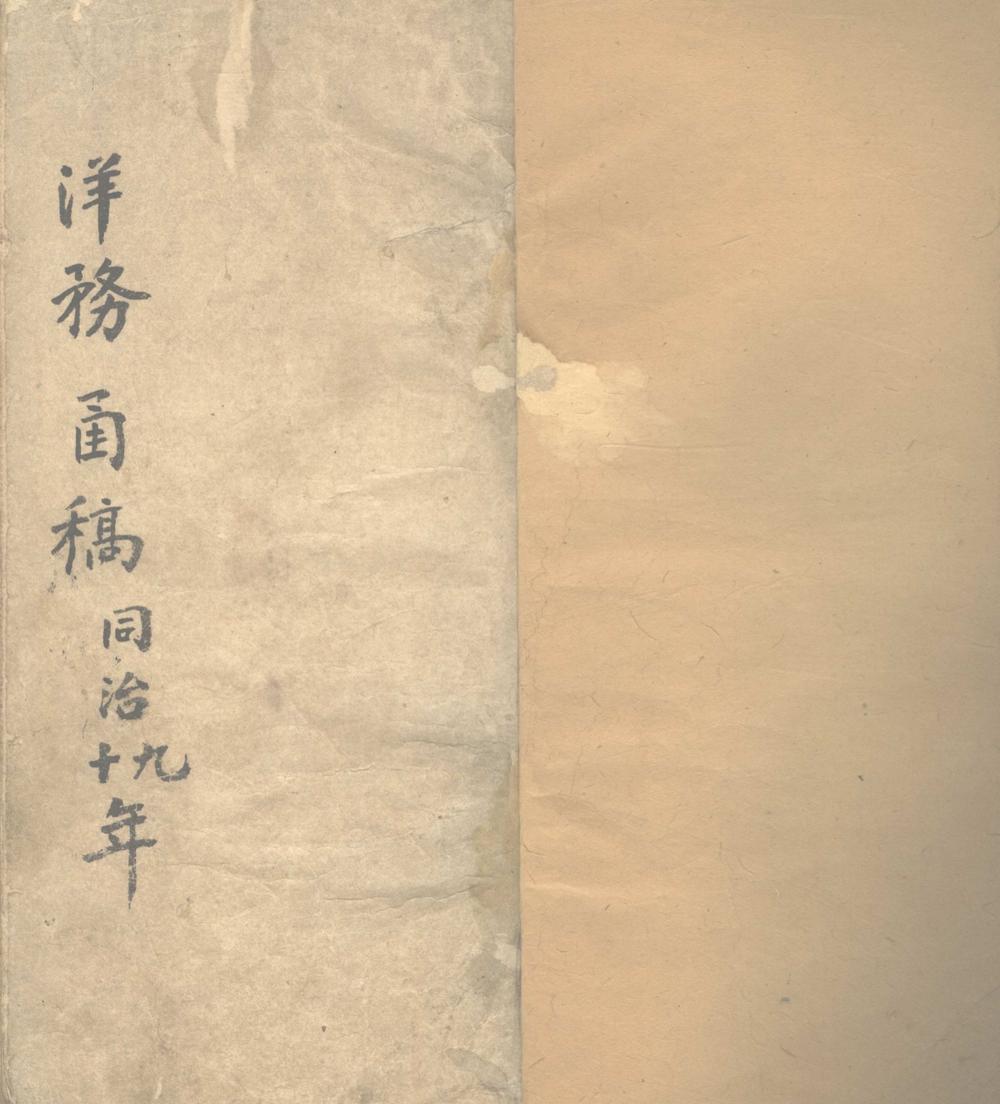 洋務函稿同治九十年